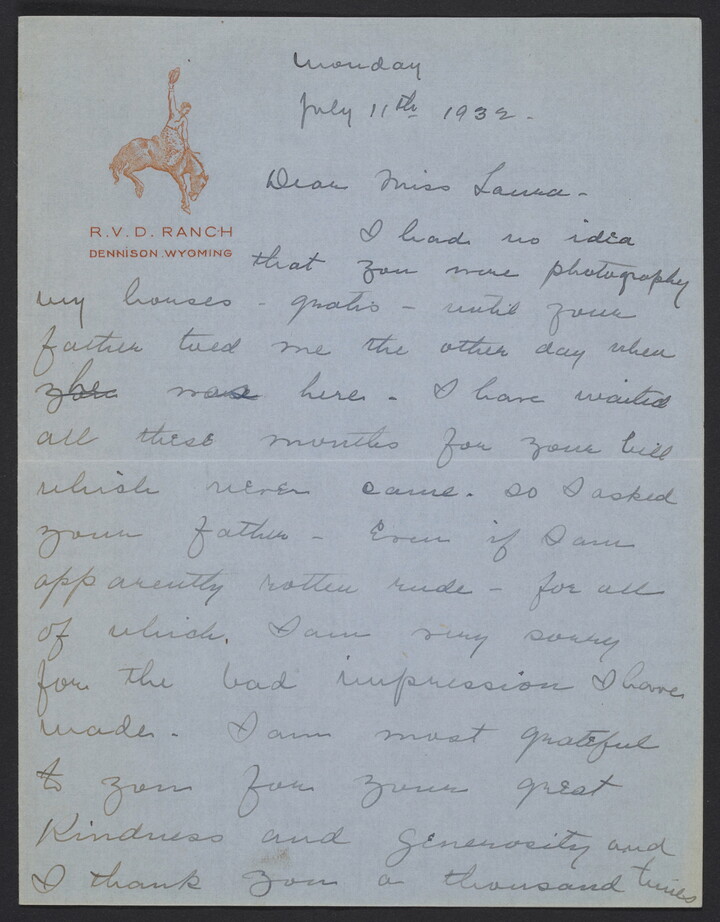 Monday
July 11th 1932.
R.V.D. RANCH
DENNISON WYOMING
Dear Miss Laura -
I had no idea
that you were photography
my houses - gratis - until your
father toed me the other day when
he was here - I have waited
all these months for your bill
which never came. so I asked
your father - Even if I am
apparently rotten rude - for all
of which. I am very sorry
for the bad impression I have
made. I am most grateful
to you for your great
Kindness and generosity and
I thank you a thousand times